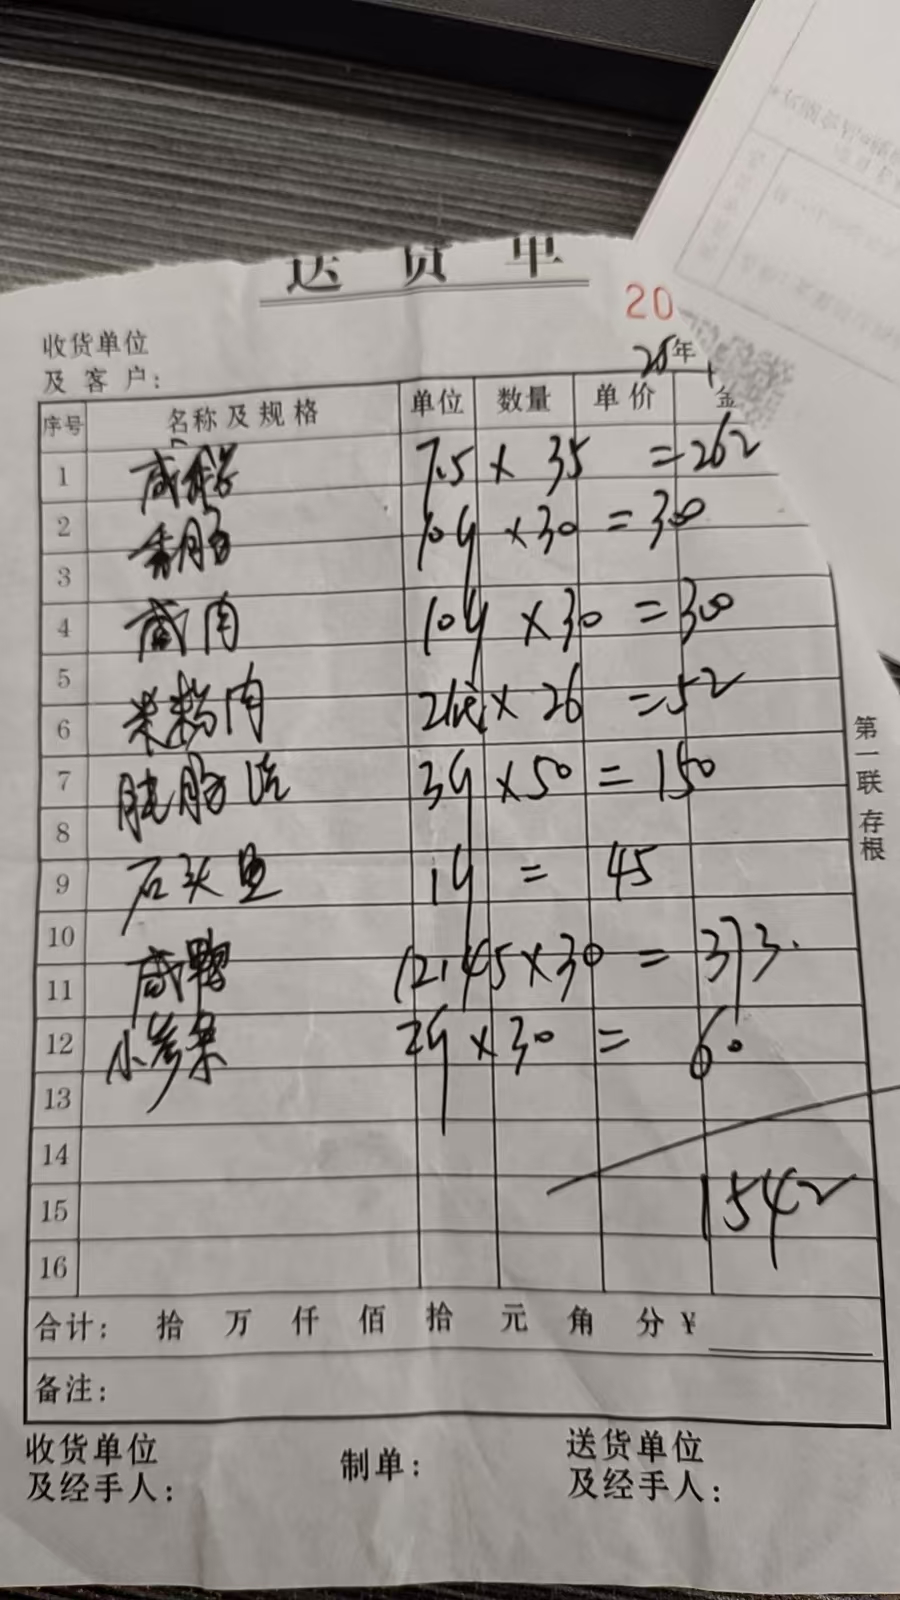 送货单
20
收货单位
及客户:
25年
序号 名称及规格 单位 数量 单价 金
1 7.5 × 35 = 262
2 香肠 10斤 × 30 = 300
3
4 咸肉 10斤 × 30 = 300
5
6 米粉肉 2袋 × 26 = 52
7 3斤 × 50 = 150
8
9 石头鱼 1斤 = 45
10
11 咸鸭 12.45 × 30 = 373.
12 2斤 × 30 = 60
13
14
15 1542
16
合计: 拾 万 仟 佰 拾 元 角 分 ¥
备注:
收货单位
及经手人:
制单:
送货单位
及经手人:
第一联 存根